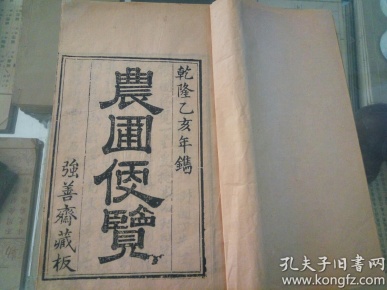 乾隆乙亥年鐫
農圃便覽
強善齋藏板
孔夫子旧书网
www.kongfz.com